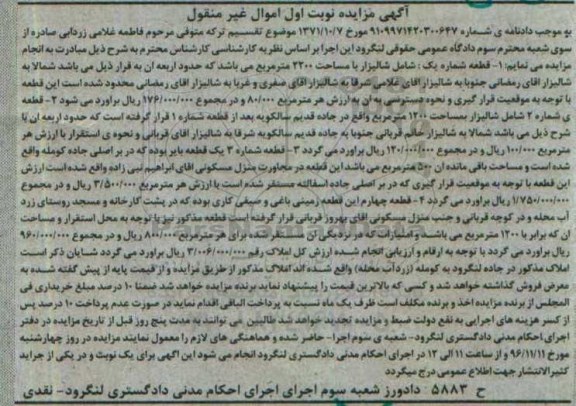 آگهی مزایده نوبت اول اموال غیر منقول
به موجب دادنامه ی شماره ۹۱۰۹۹۷۱۴۲۰۳۰۰۶۴۷ مورخ ۱۳۷۱/۱۰/۰۷ موضوع تقسیم ترکه متوفی مرحوم فاطمه غلامی زردابی صادره از
سوی شعبه محترم سوم دادگاه عمومی حقوقی لنگرود این اجرا بر اساس نظریه کارشناسی کارشناس محترم به شرح ذیل مبادرت به انجام
مزایده می نمایم: ۱- قطعه شماره یک : شامل شالیزار با مساحت ۲۲۰۰ مترمربع می باشد که حدود اربعه ان به قرار ذیل می باشد شمالا به
شالیزار اقای رمضانی جنوبا به شالیزار اقای غلامی شرقا به شالیزار اقای صفری و غربا به شالیزار اقای رمضانی محدود شده است این قطعه
با توجه به موقعیت قرار گیری و نحوه دسترسی به ان به ارزش هر مترمربع ۸۰/۰۰۰ و در مجموع ۱۷۶/۰۰۰/۰۰۰ ریال براورد می شود ۲- قطعه
ی شماره ۲ شامل شالیزار بمساحت ۱۲۰۰ مترمربع واقع در جاده قدیم سالکویه بعد از قطعه شماره ۱ قرار گرفته است که حدود اربعه ان با
شرح ذیل می باشد شمالا به شالیزار خانم قربانی جنوبا به جاده قدیم سالکویه شرقا به شالیزار اقای قربانی و نحوه ی استقرار با ارزش هر
مترمربع ۱۰۰/۰۰۰ ریال و در مجموع ۱۲۰/۰۰۰/۰۰۰ ریال براورد می گردد ۳- قطعه شماره ۳ یک قطعه بایر بوده که در بر اصلی جاده کومله واقع
شده است و مساحت باقی مانده ان ۵۰۰ مترمربع می باشد این قطعه در مجاورت منزل مسکونی اقای ابراهیم نبی زاده واقع شده است ارزش
این قطعه با توجه به موقعیت قرار گیری که در بر اصلی جاده اسفالته مستقر شده است با ارزش هر مترمربع ۳/۵۰۰/۰۰۰ ریال و در مجموع
۱/۷۵۰/۰۰۰/۰۰۰ ریال براورد می گردد ۴- قطعه چهارم این قطعه زمینی باغی و صیفی کاری بوده که در پشت کارخانه و مسجد روستای زرد
آب محله و در کوچه قربانی و جنب منزل مسکونی اقای بهروز قربانی قرار گرفته است قطعه مذکور نیز با توجه به محل استقرار و مساحت
ان که برابر با ۱۲۰۰ مترمربع می باشد و امتیازات که در نزدیکی ان مستقر شده برای هر مترمربع ۸۰۰/۰۰۰ ریال و در مجموع ۹۶۰/۰۰۰/۰۰۰
ریال براورد می گردد با توجه به ارقام و ارزیابی انجام شده ارزش کل املاک رقم ۳/۰۰۶/۰۰۰/۰۰۰ ریال براورد می گردد شایان ذکر است
املاک مذکور در جاده لنگرود به کومله (زردآب محله) واقع شده اند املاک مذکور از طریق مزایده و از قیمت پایه از پیش گفته شده به
معرض فروش گذاشته خواهد شد و کسی که بالاترین قیمت را پیشنهاد نماید برنده مزایده خواهد شد ضمنا ۱۰ درصد مبلغ خریداری فی
المجلس از برنده مزایده اخذ و برنده مکلف است ظرف یک ماه نسبت به پرداخت الباقی اقدام نماید در صورت عدم پرداخت ۱۰ درصد پس
از کسر هزینه های اجرایی به نفع دولت ضبط و مزایده تجدید خواهد شد طالبین می توانند به مدت پنج روز قبل از تاریخ مزایده در دفتر
اجرای احکام مدنی دادگستری لنگرود- شعبه ی سوم اجرا- حاضر شده و هماهنگی های لازم را معمول نمایند مزایده در روز چهارشنبه
مورخ ۹۶/۱۱/۱۱ و از ساعت ۱۱ الی ۱۲ در اجرای احکام مدنی دادگستری لنگرود انجام می شود این آگهی برای یک نوبت و در یکی از جراید
کثیرالانتشار جهت اطلاع عمومی درج میگردد
ح ۵۸۸۳ : دادورز شعبه سوم اجرای اجرای احکام مدنی دادگستری لنگرود- نقدی